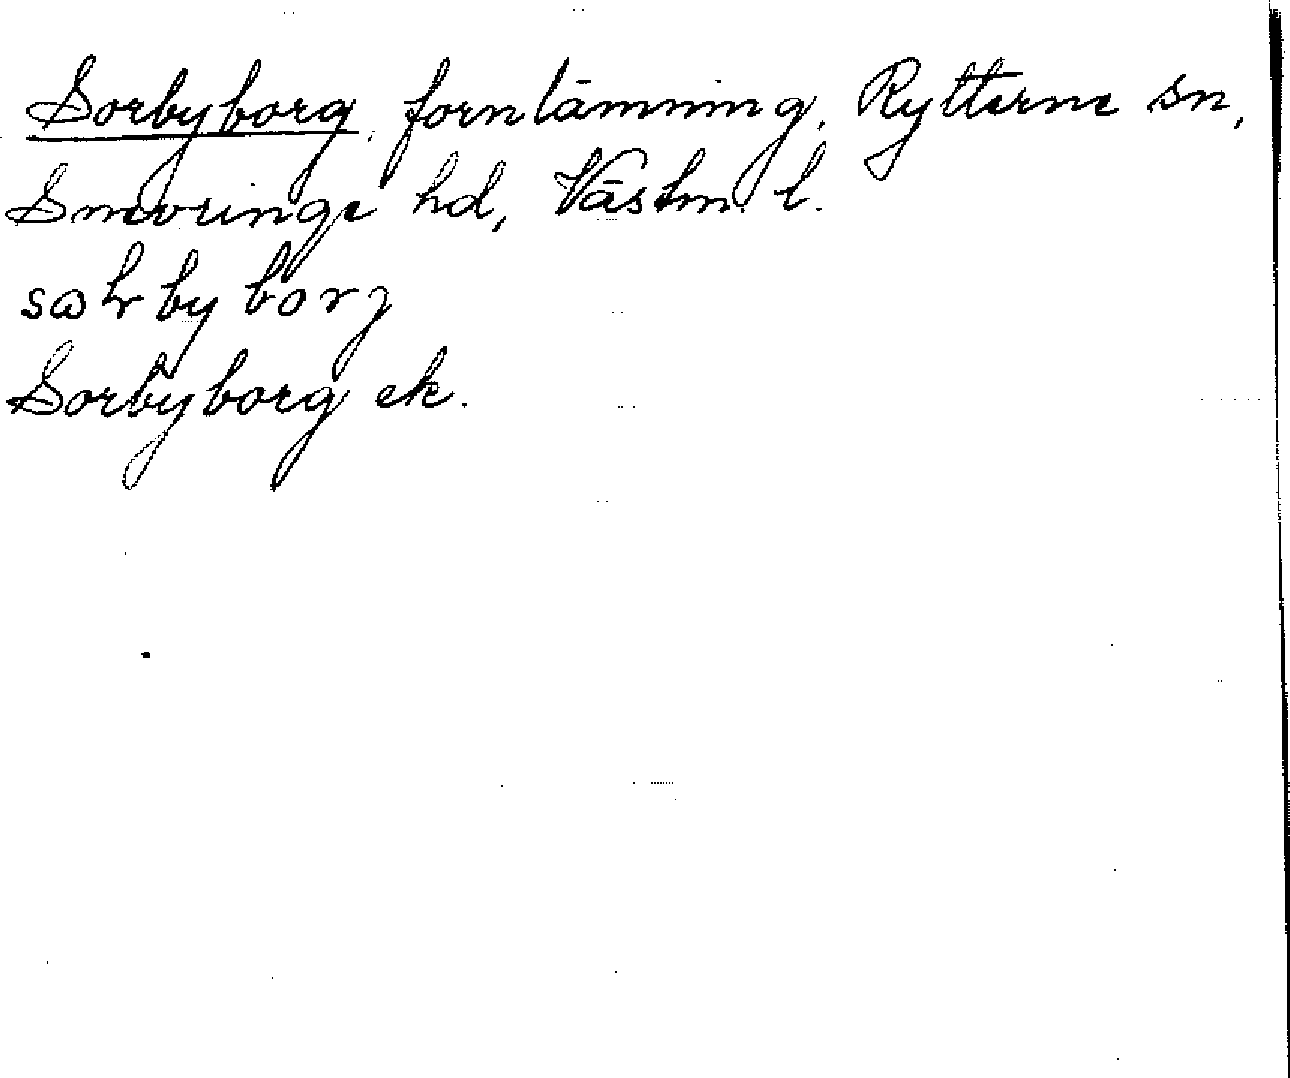 Sorbyborg, fornlämning, Rytterne sn,
Snevringe hd, Västm. l.
Sorbyborg ek.